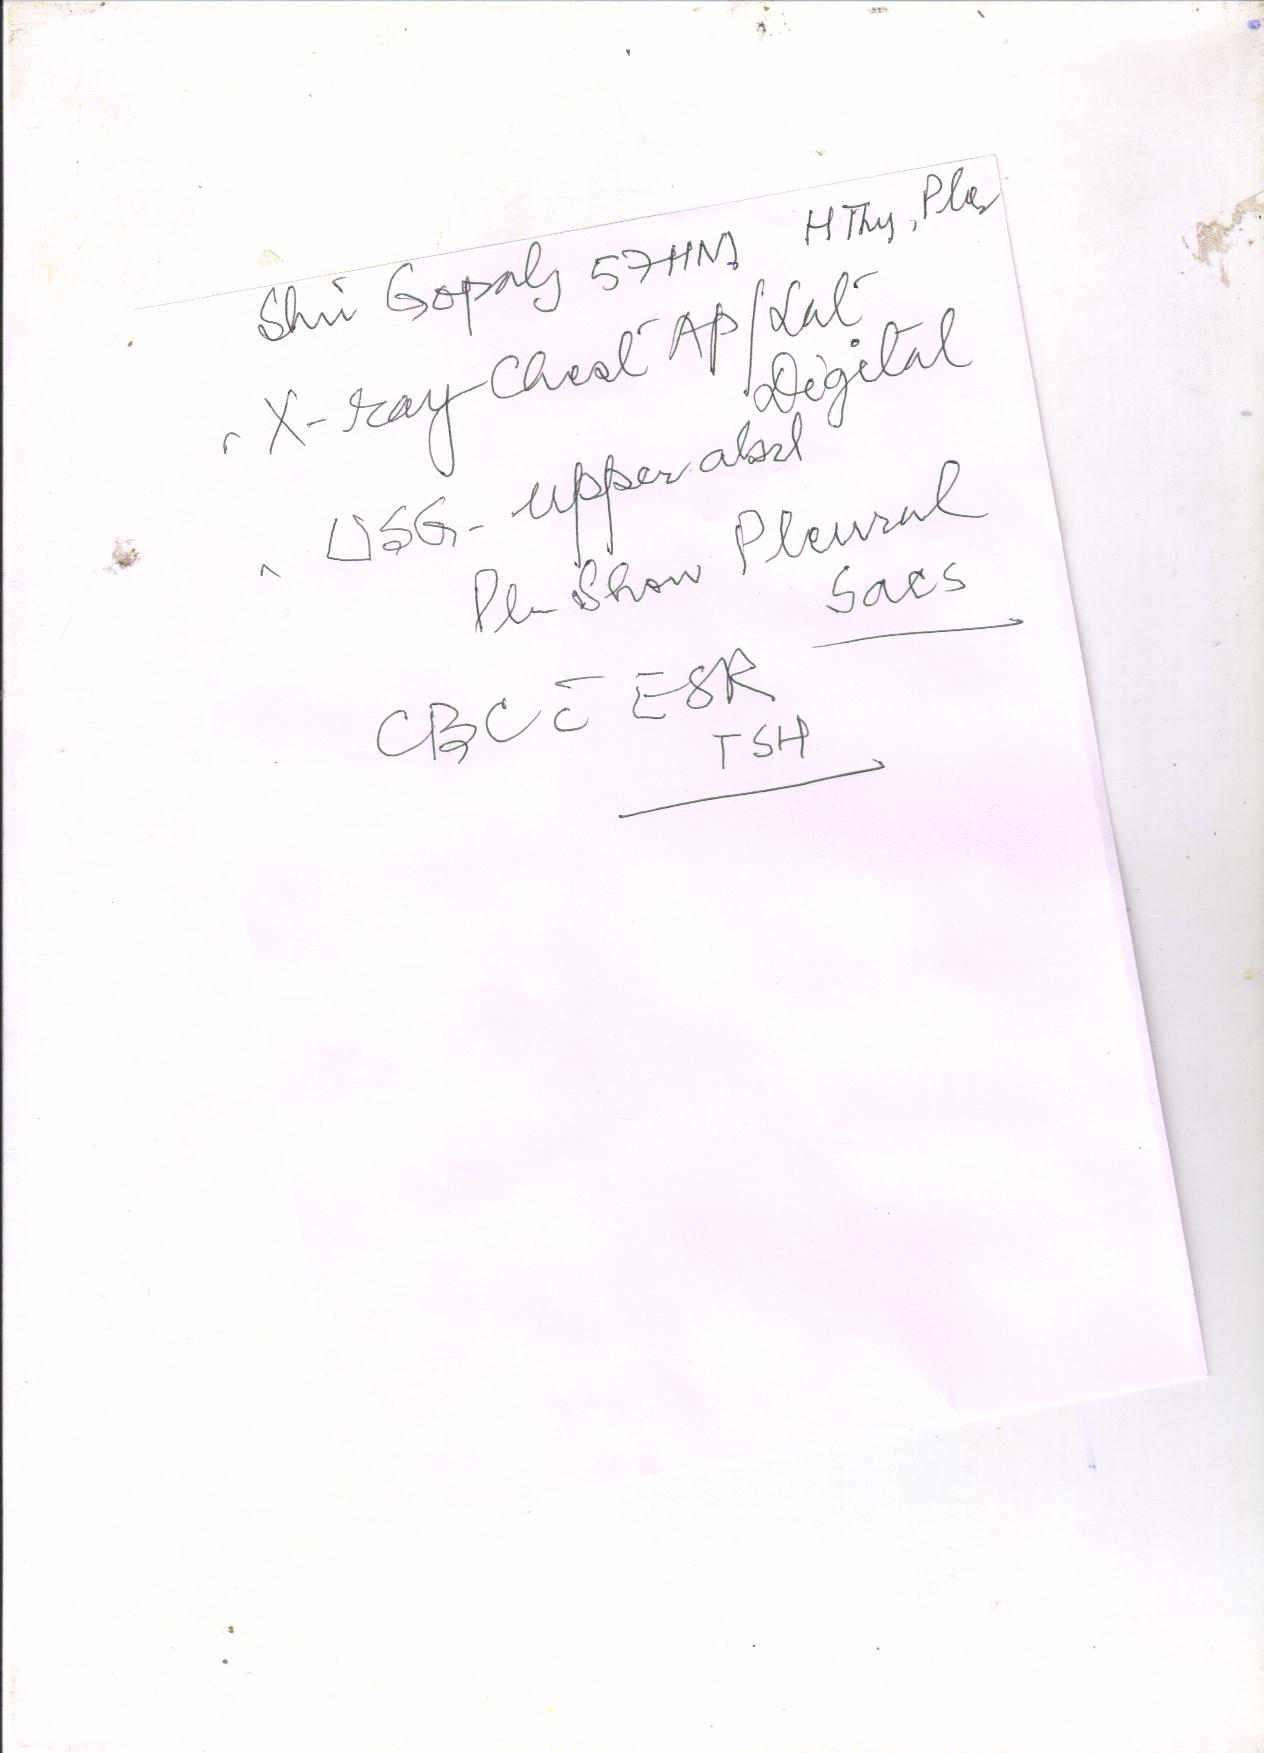 Shri Gopalj 57HM H Thy, Ples
X-ray Chest AP/Lat
Digital
USG- upper abd
Ple Show Pleural
Sacs
CBC c̄ ESR
TSH